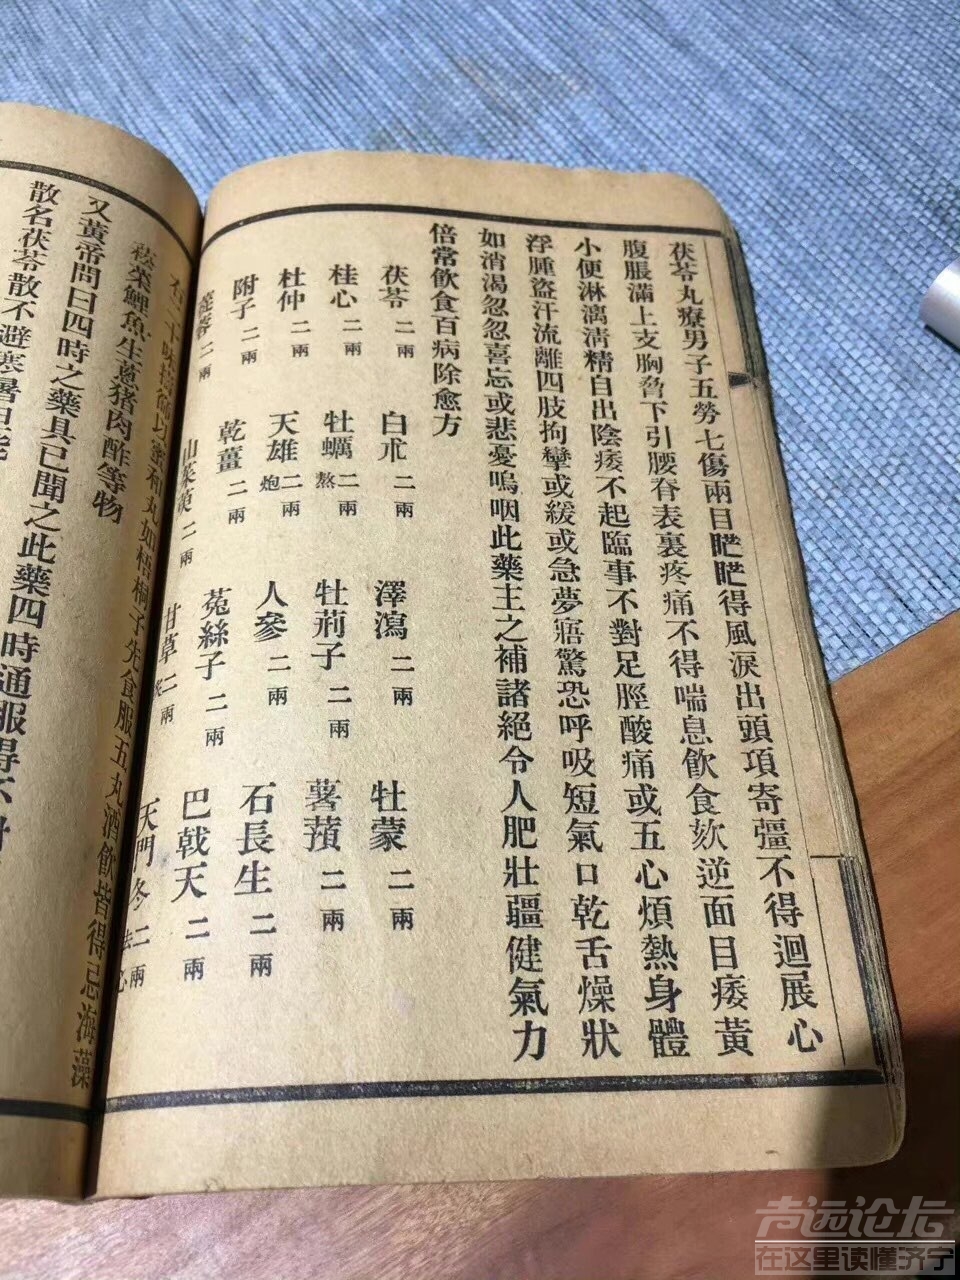 茯苓丸療男子五勞七傷兩目䀮䀮得風淚出頭項寄彊不得迴展心
腹脹滿上支胸脅下引腰脊表裏疼痛不得喘息飲食欬逆面目痿黃
小便淋漓清精自出陰痿不起臨事不對足脛酸痛或五心煩熱身體
浮腫盜汗流離四肢拘攣或緩或急夢寤驚恐呼吸短氣口乾舌燥狀
如消渴忽忽喜忘或悲憂嗚咽此藥主之補諸絕令人肥壯彊健氣力
倍常飲食百病除愈方
茯苓二兩 白朮二兩 澤瀉二兩 牡蒙二兩
桂心二兩 牡蠣二兩熬 牡荊子二兩 薯蕷二兩
杜仲二兩 天雄二兩炮 人參二兩 石長生二兩
附子二兩 乾薑二兩 菟絲子二兩 巴戟天二兩
蓉二兩 山茱萸二兩 甘草二兩炙 天門冬二兩去心
右二十味搗篩以蜜和丸如梧桐子先食服五丸酒飲皆得忌海藻
菘菜鯉魚生蔥猪肉酢等物
又黃帝問曰四時之藥具已聞之此藥四時通服得不
散名茯苓散不避寒暑
声远论坛
在这里读懂济宁